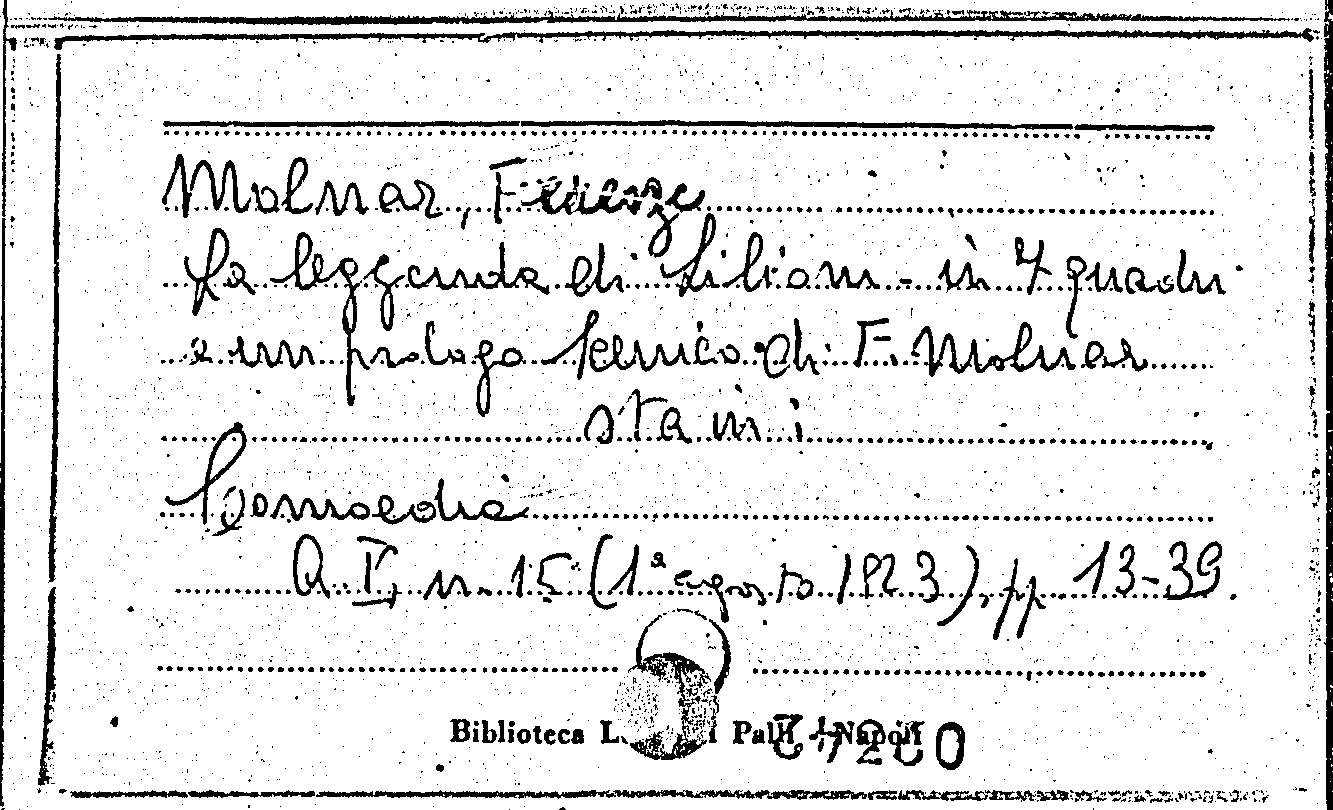 Molnar, Ferenze
La leggenda di Liliom - in 7 quadri
e un prologo scenico di F. Molnar
sta in:
Comoedia
A. V, n. 15 (1° agosto 1923), pp. 13-39.
Biblioteca Palli Napoli